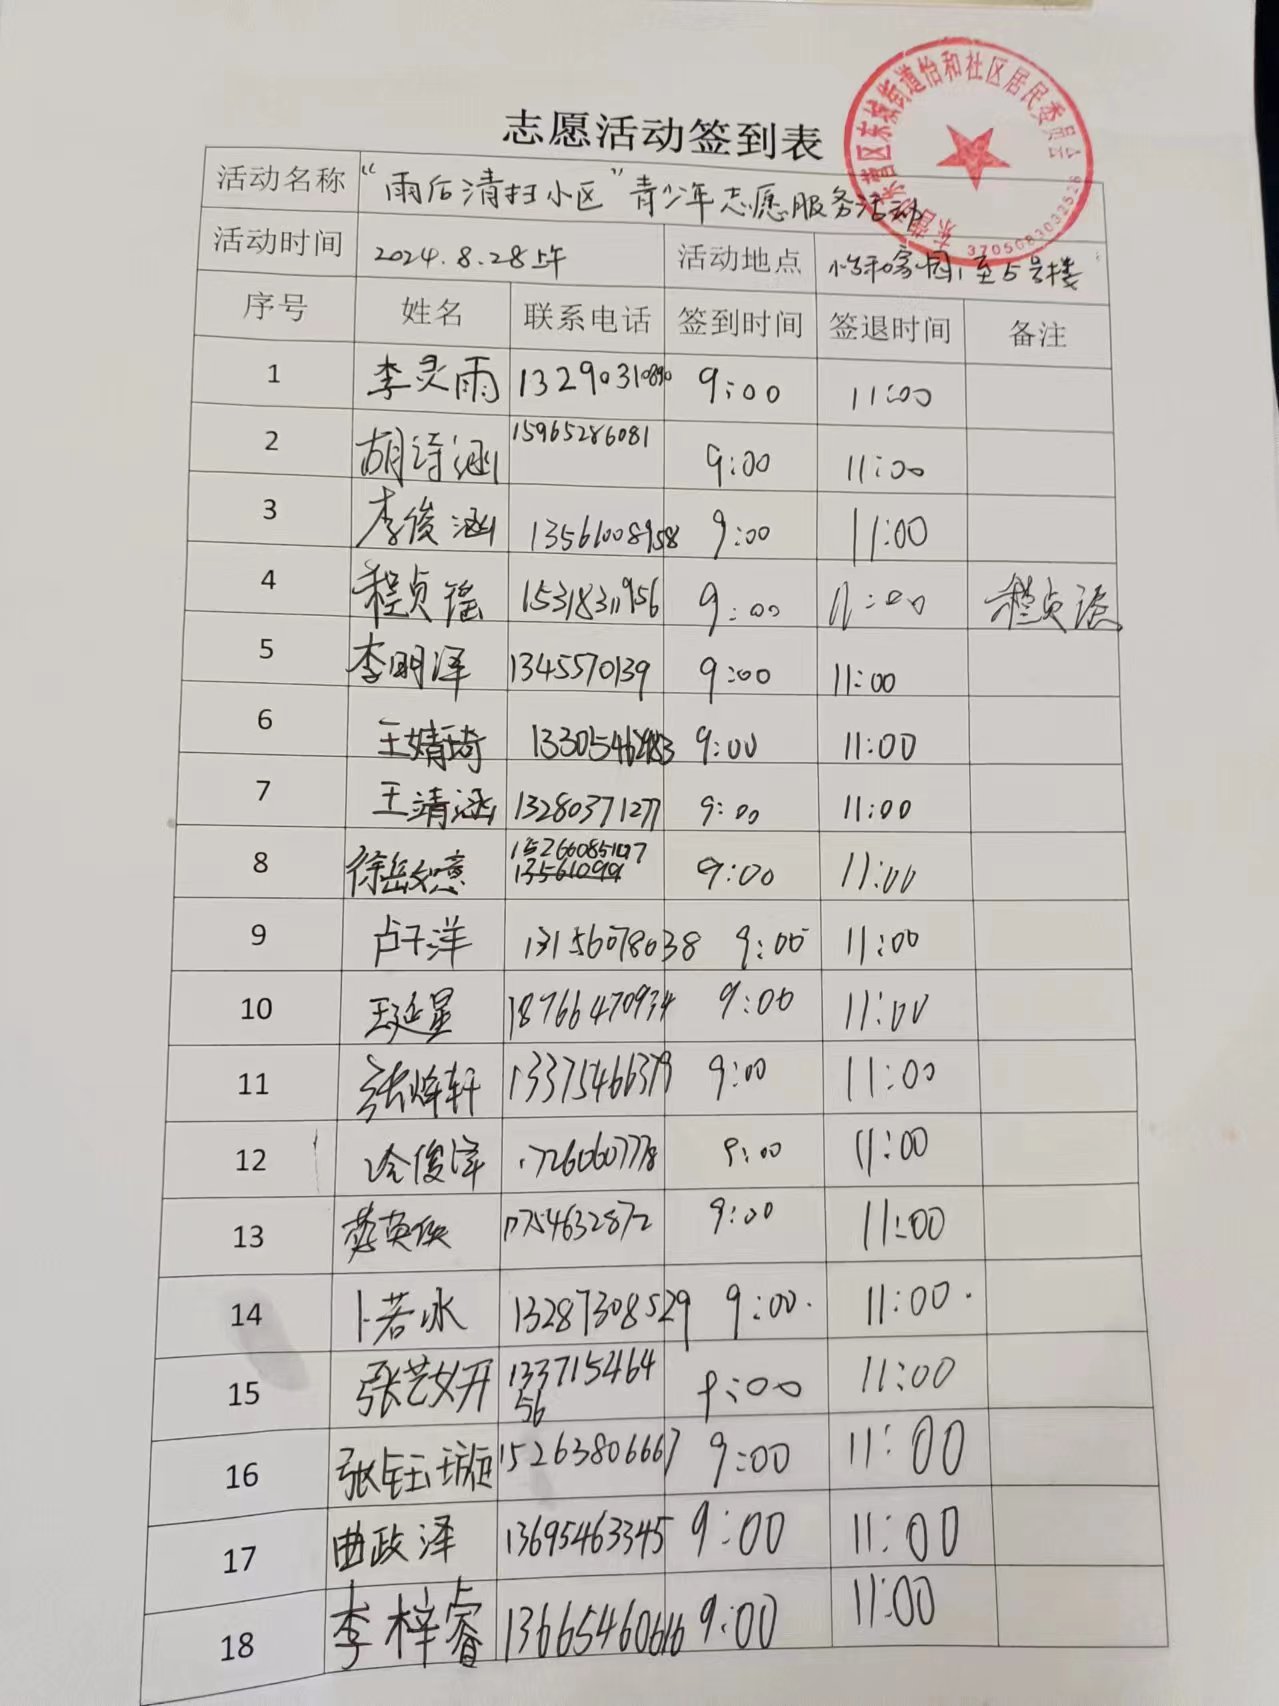 志愿活动签到表
东营市东营区东城街道怡和社区居民委员会
3705083032526
活动名称 “雨后清扫小区”青少年志愿服务活动
活动时间 2024.8.28上午 活动地点 怡和家园1至5号楼
序号 姓名 联系电话 签到时间 签退时间 备注
1 李灵雨 13290310890 9:00 11:00
2 胡诗涵 15965286081 9:00 11:00
3 李俊涵 13561008958 9:00 11:00
4 程贞谣 15318311956 9:00 11:00 程贞谣
5 李明泽 1345570139 9:00 11:00
6 王婧琦 9:00 11:00
7 王靖涵 13280371277 9:00 11:00
8 徐岳如意 9:00 11:00
9 卢干洋 13156078038 9:00 11:00
10 王延星 18766470934 9:00 11:00
11 张烨轩 13375466379 9:00 11:00
12 冷俊泽 17260607778 9:00 11:00
13 17754632872 9:00 11:00
14 卜若冰 13287308529 9:00. 11:00.
15 张艺女开 133715464
56 9:00 11:00
16 张钰璇 15263806667 9:00 11:00
17 曲政泽 13695463345 9:00 11:00
18 李梓睿 13665460616 9:00 11:00